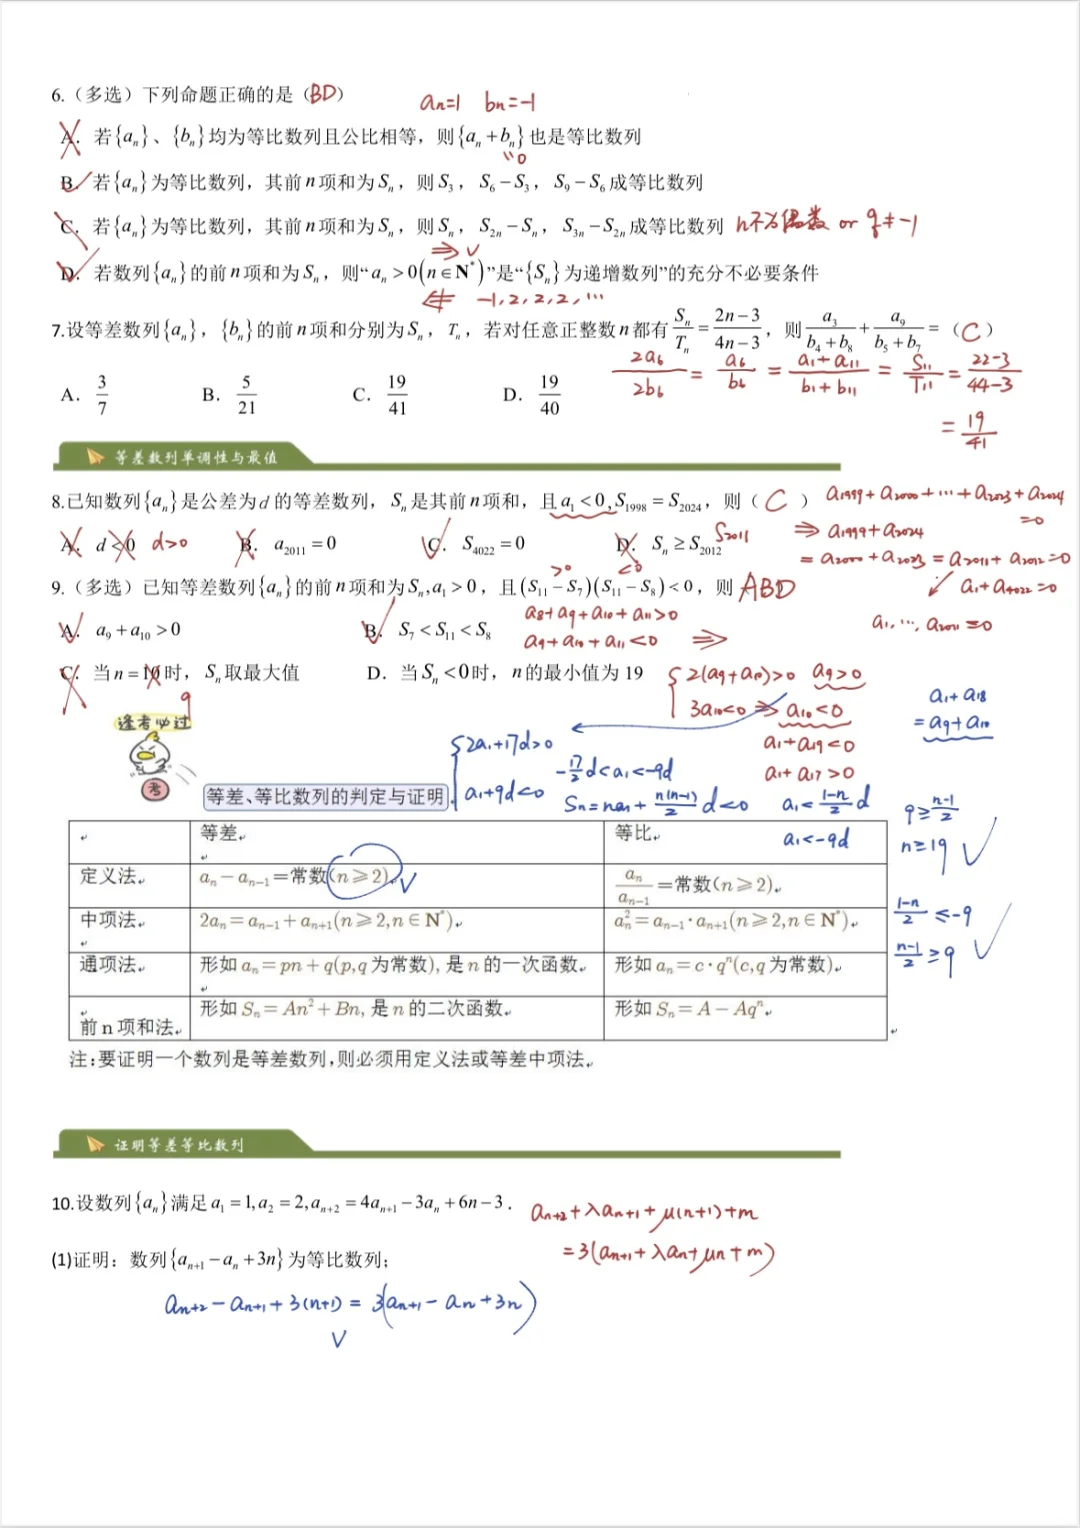 6.（多选）下列命题正确的是（BD）
an=1 bn=-1
A. 若{an}、{bn}均为等比数列且公比相等，则{an+bn}也是等比数列
"0
B. 若{an}为等比数列，其前n项和为Sn，则S3，S6-S3，S9-S6成等比数列
C. 若{an}为等比数列，其前n项和为Sn，则Sn，S2n-Sn，S3n-S2n成等比数列 n不为偶数 or q≠-1
⇒ √
D. 若数列{an}的前n项和为Sn，则“an>0(n∈N*)”是“{Sn}为递增数列”的充分不必要条件
⇍ -1,2,2,2,…
7.设等差数列{an}，{bn}的前n项和分别为Sn，Tn，若对任意正整数n都有Sn/Tn=(2n-3)/(4n-3)，则a3/(b4+b8)+a9/(b5+b7)=（C）
2a6/2b6 = a6/b6 = (a1+a11)/(b1+b11) = S11/T11 = (22-3)/(44-3)
= 19/41
A. 3/7 B. 5/21 C. 19/41 D. 19/40
等差数列单调性与最值
8.已知数列{an}是公差为d的等差数列，Sn是其前n项和，且a1<0,S1998=S2024，则（C）
a1999+a2000+…+a2023+a2024
=0
A. d<0 d>0 B. a2011=0 C. S4022=0 D. Sn≥S2012 S2011
⇒ a1999+a2024
=a2000+a2023=a2011+a2012=0
9.（多选）已知等差数列{an}的前n项和为Sn,a1>0，且(S11-S7)(S11-S8)<0，则 ABD
>0 <0
a1+a4022=0
A. a9+a10>0 B. S7<S11<S8
a8+a9+a10+a11>0
a9+a10+a11<0 ⇒
a1,…,a2011≤0
C. 当n=10时，Sn取最大值 D. 当Sn<0时，n的最小值为19
9
{2(a9+a10)>0 a9>0
3a10<0 ⇒ a10<0
a1+a19<0
a1+a17>0
a1+a18
=a9+a10
逢考必过
考
{2a1+17d>0
a1+9d<0
-17/2 d<a1<-9d
Sn=na1+n(n-1)/2 d<0 a1<(1-n)/2 d
a1<-9d
9≥(n-1)/2
n≥19 √
(1-n)/2≤-9
(n-1)/2≥9 √
等差、等比数列的判定与证明
等差 等比
定义法 an-an-1=常数(n≥2) √ an/an-1=常数(n≥2)
中项法 2an=an-1+an+1(n≥2,n∈N*) an²=an-1·an+1(n≥2,n∈N*)
通项法 形如an=pn+q(p,q为常数),是n的一次函数 形如an=c·qⁿ(c,q为常数)
前n项和法 形如Sn=An²+Bn,是n的二次函数 形如Sn=A-Aqⁿ
注:要证明一个数列是等差数列,则必须用定义法或等差中项法
证明等差等比数列
10.设数列{an}满足a1=1,a2=2,an+2=4an+1-3an+6n-3.
an+2+λan+1+μ(n+1)+m
=3(an+1+λan+μn+m)
(1)证明：数列{an+1-an+3n}为等比数列；
an+2-an+1+3(n+1)=3(an+1-an+3n)
√